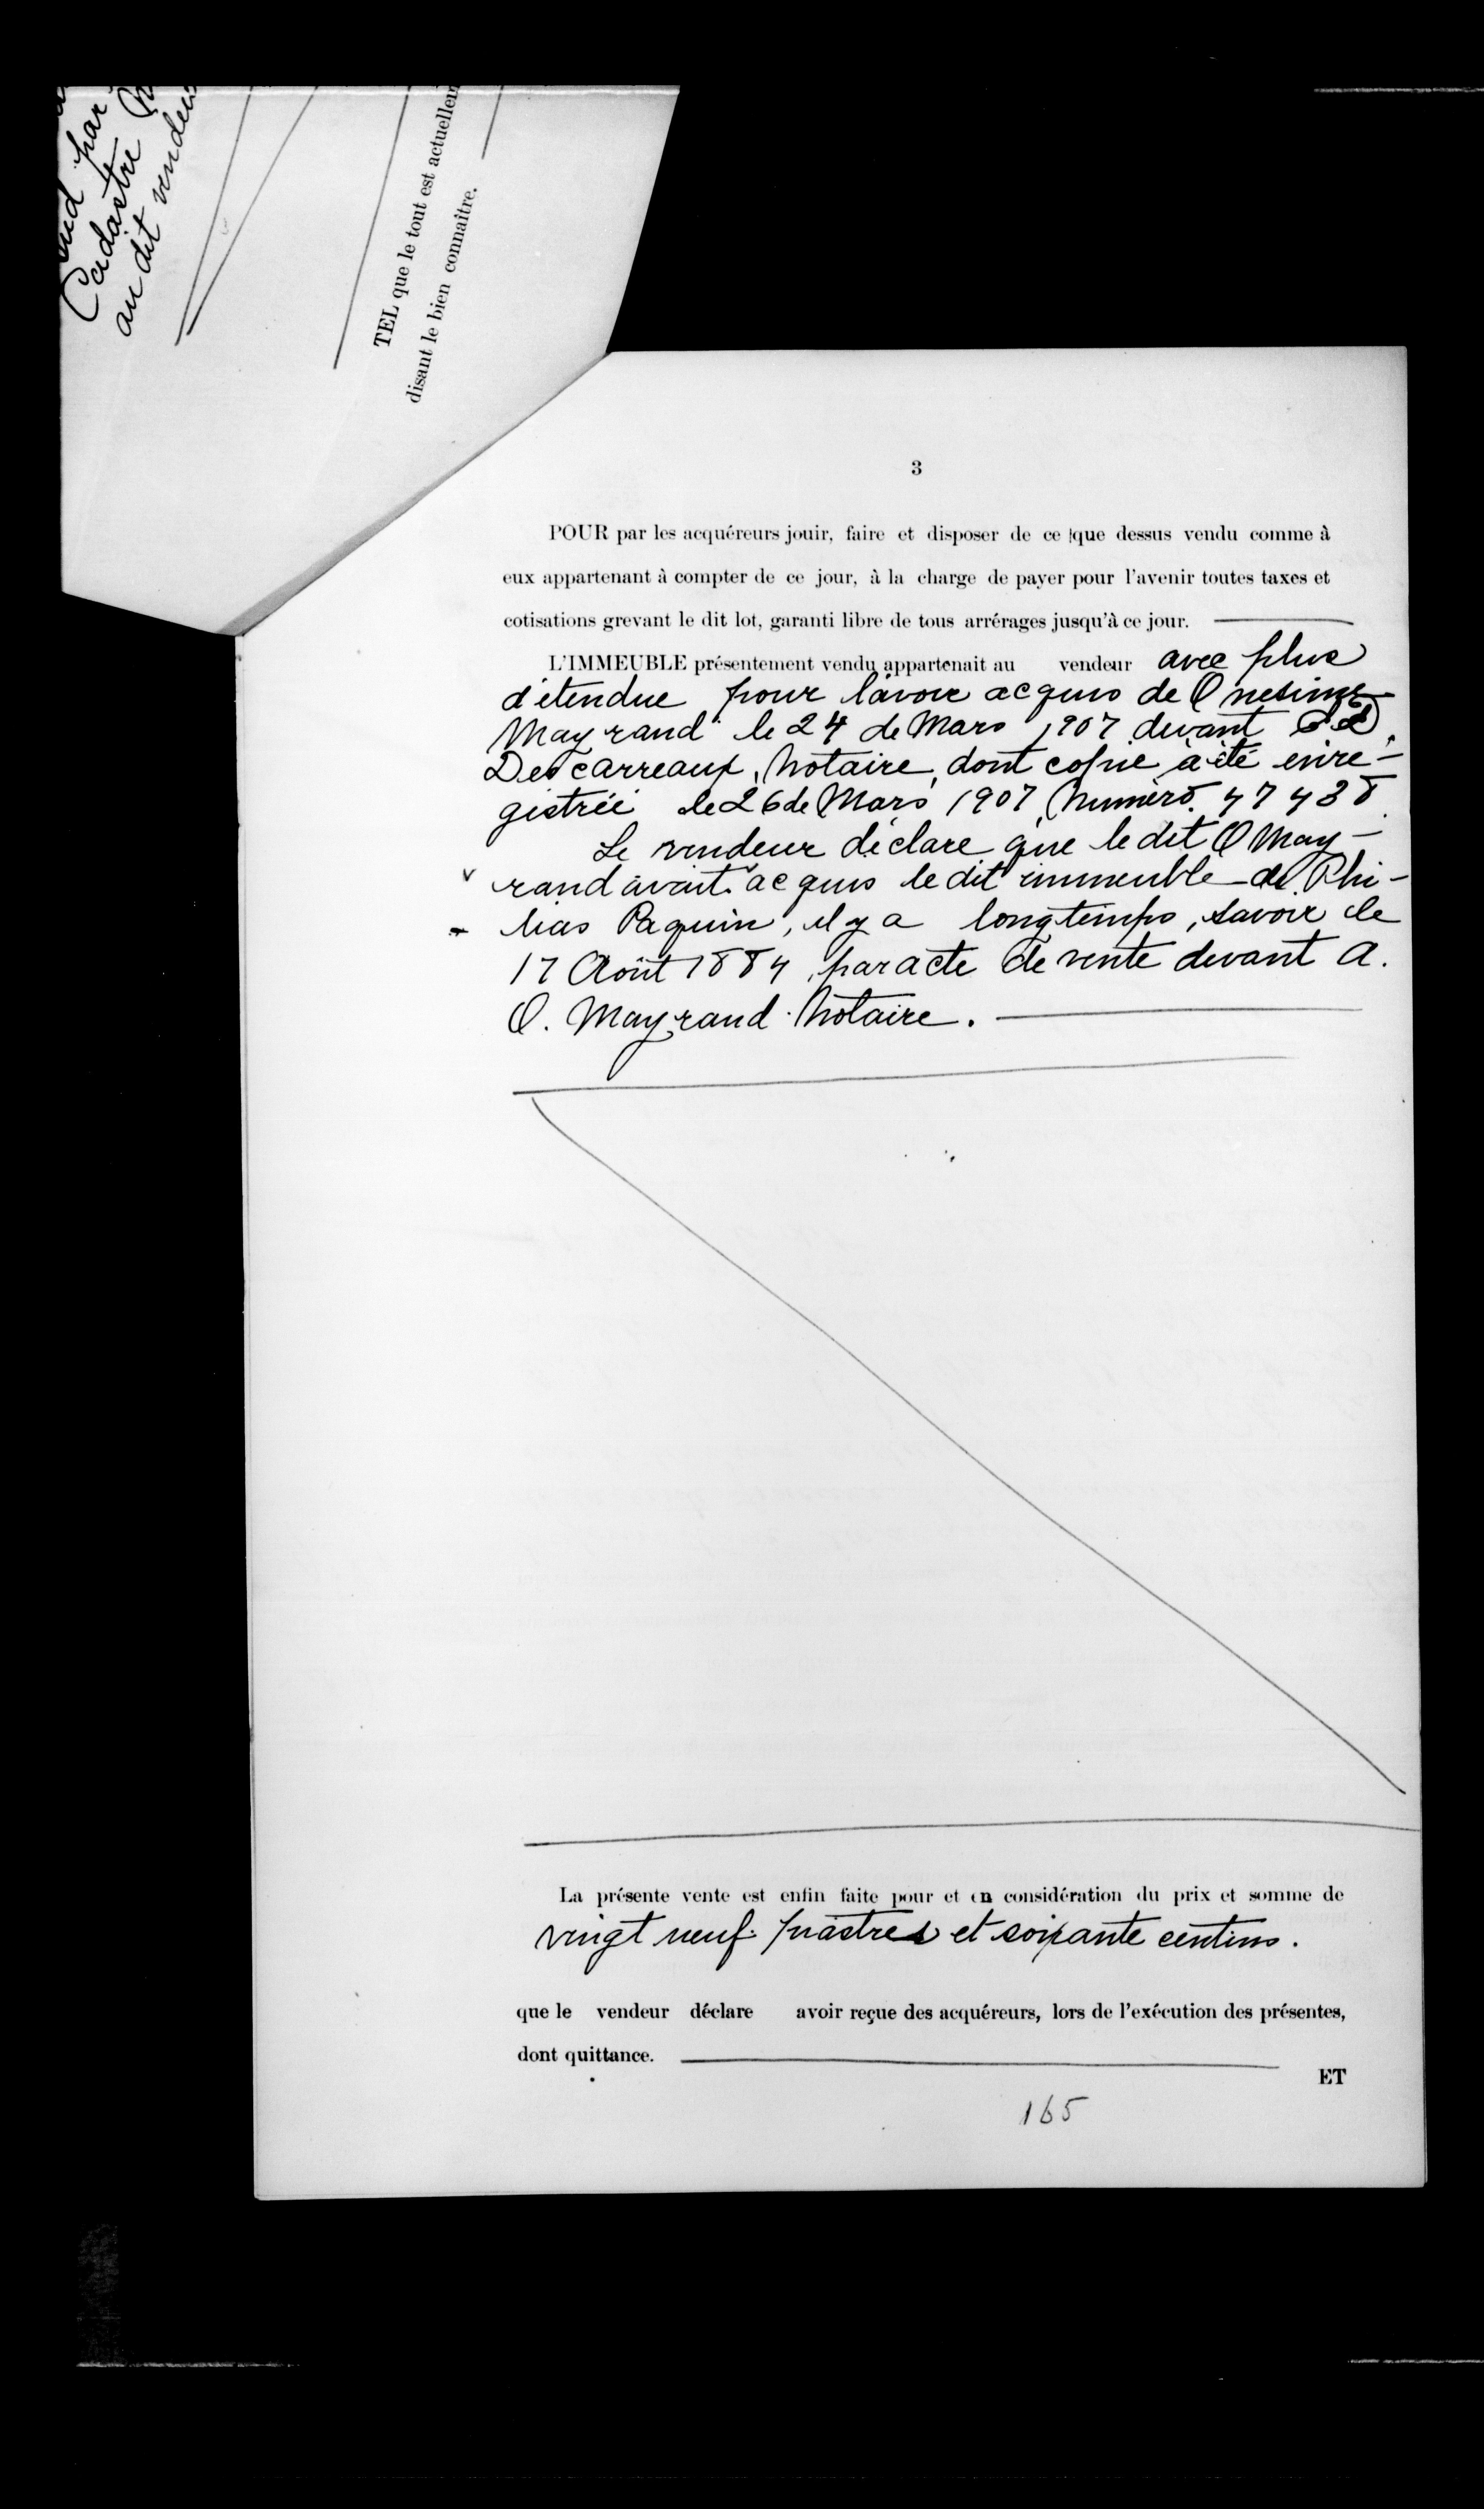 und par
Cadastre
au dit vendeur
TEL que le tout est actuellem
disant le bien connaitre.
3
POUR par les acquéreurs jouir, faire et disposer de ce que dessus vendu comme à
eux appartenant à compter de ce jour, à la charge de payer pour l'avenir toutes taxes et
cotisations grevant le dit lot, garanti libre de tous arrérages jusqu'à ce jour.
L'IMMEUBLE présentement vendu appartenait au vendeur avec plus
d'étendue pour l'avoir acquis de Onesime
Mayrand le 24 de Mars 1907 devant
Descarreaux, Notaire, dont copie a été enre-
gistrée le 26 de Mars 1907, Numéro 47438
Le vendeur déclare que le dit O May-
rand avait acquis le dit immeuble de Phi-
lias Paquin, il y a longtemps, savoir le
17 Août 1884, par acte de vente devant A.
O. Mayrand Notaire.
La présente vente est enfin faite pour et en considération du prix et somme de
vingt neuf piastres et soixante centins.
que le vendeur déclare avoir reçue des acquéreurs, lors de l'exécution des présentes,
dont quittance.
ET
165